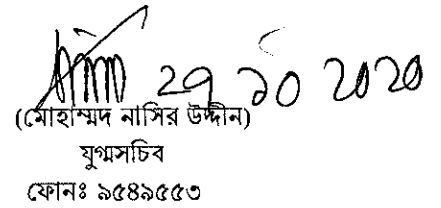 ২৭ ১০ ২০২০
(মোহাম্মদ নাসির উদ্দীন)
যুগ্মসচিব
ফোনঃ ৯৫৪৯৫৫৩